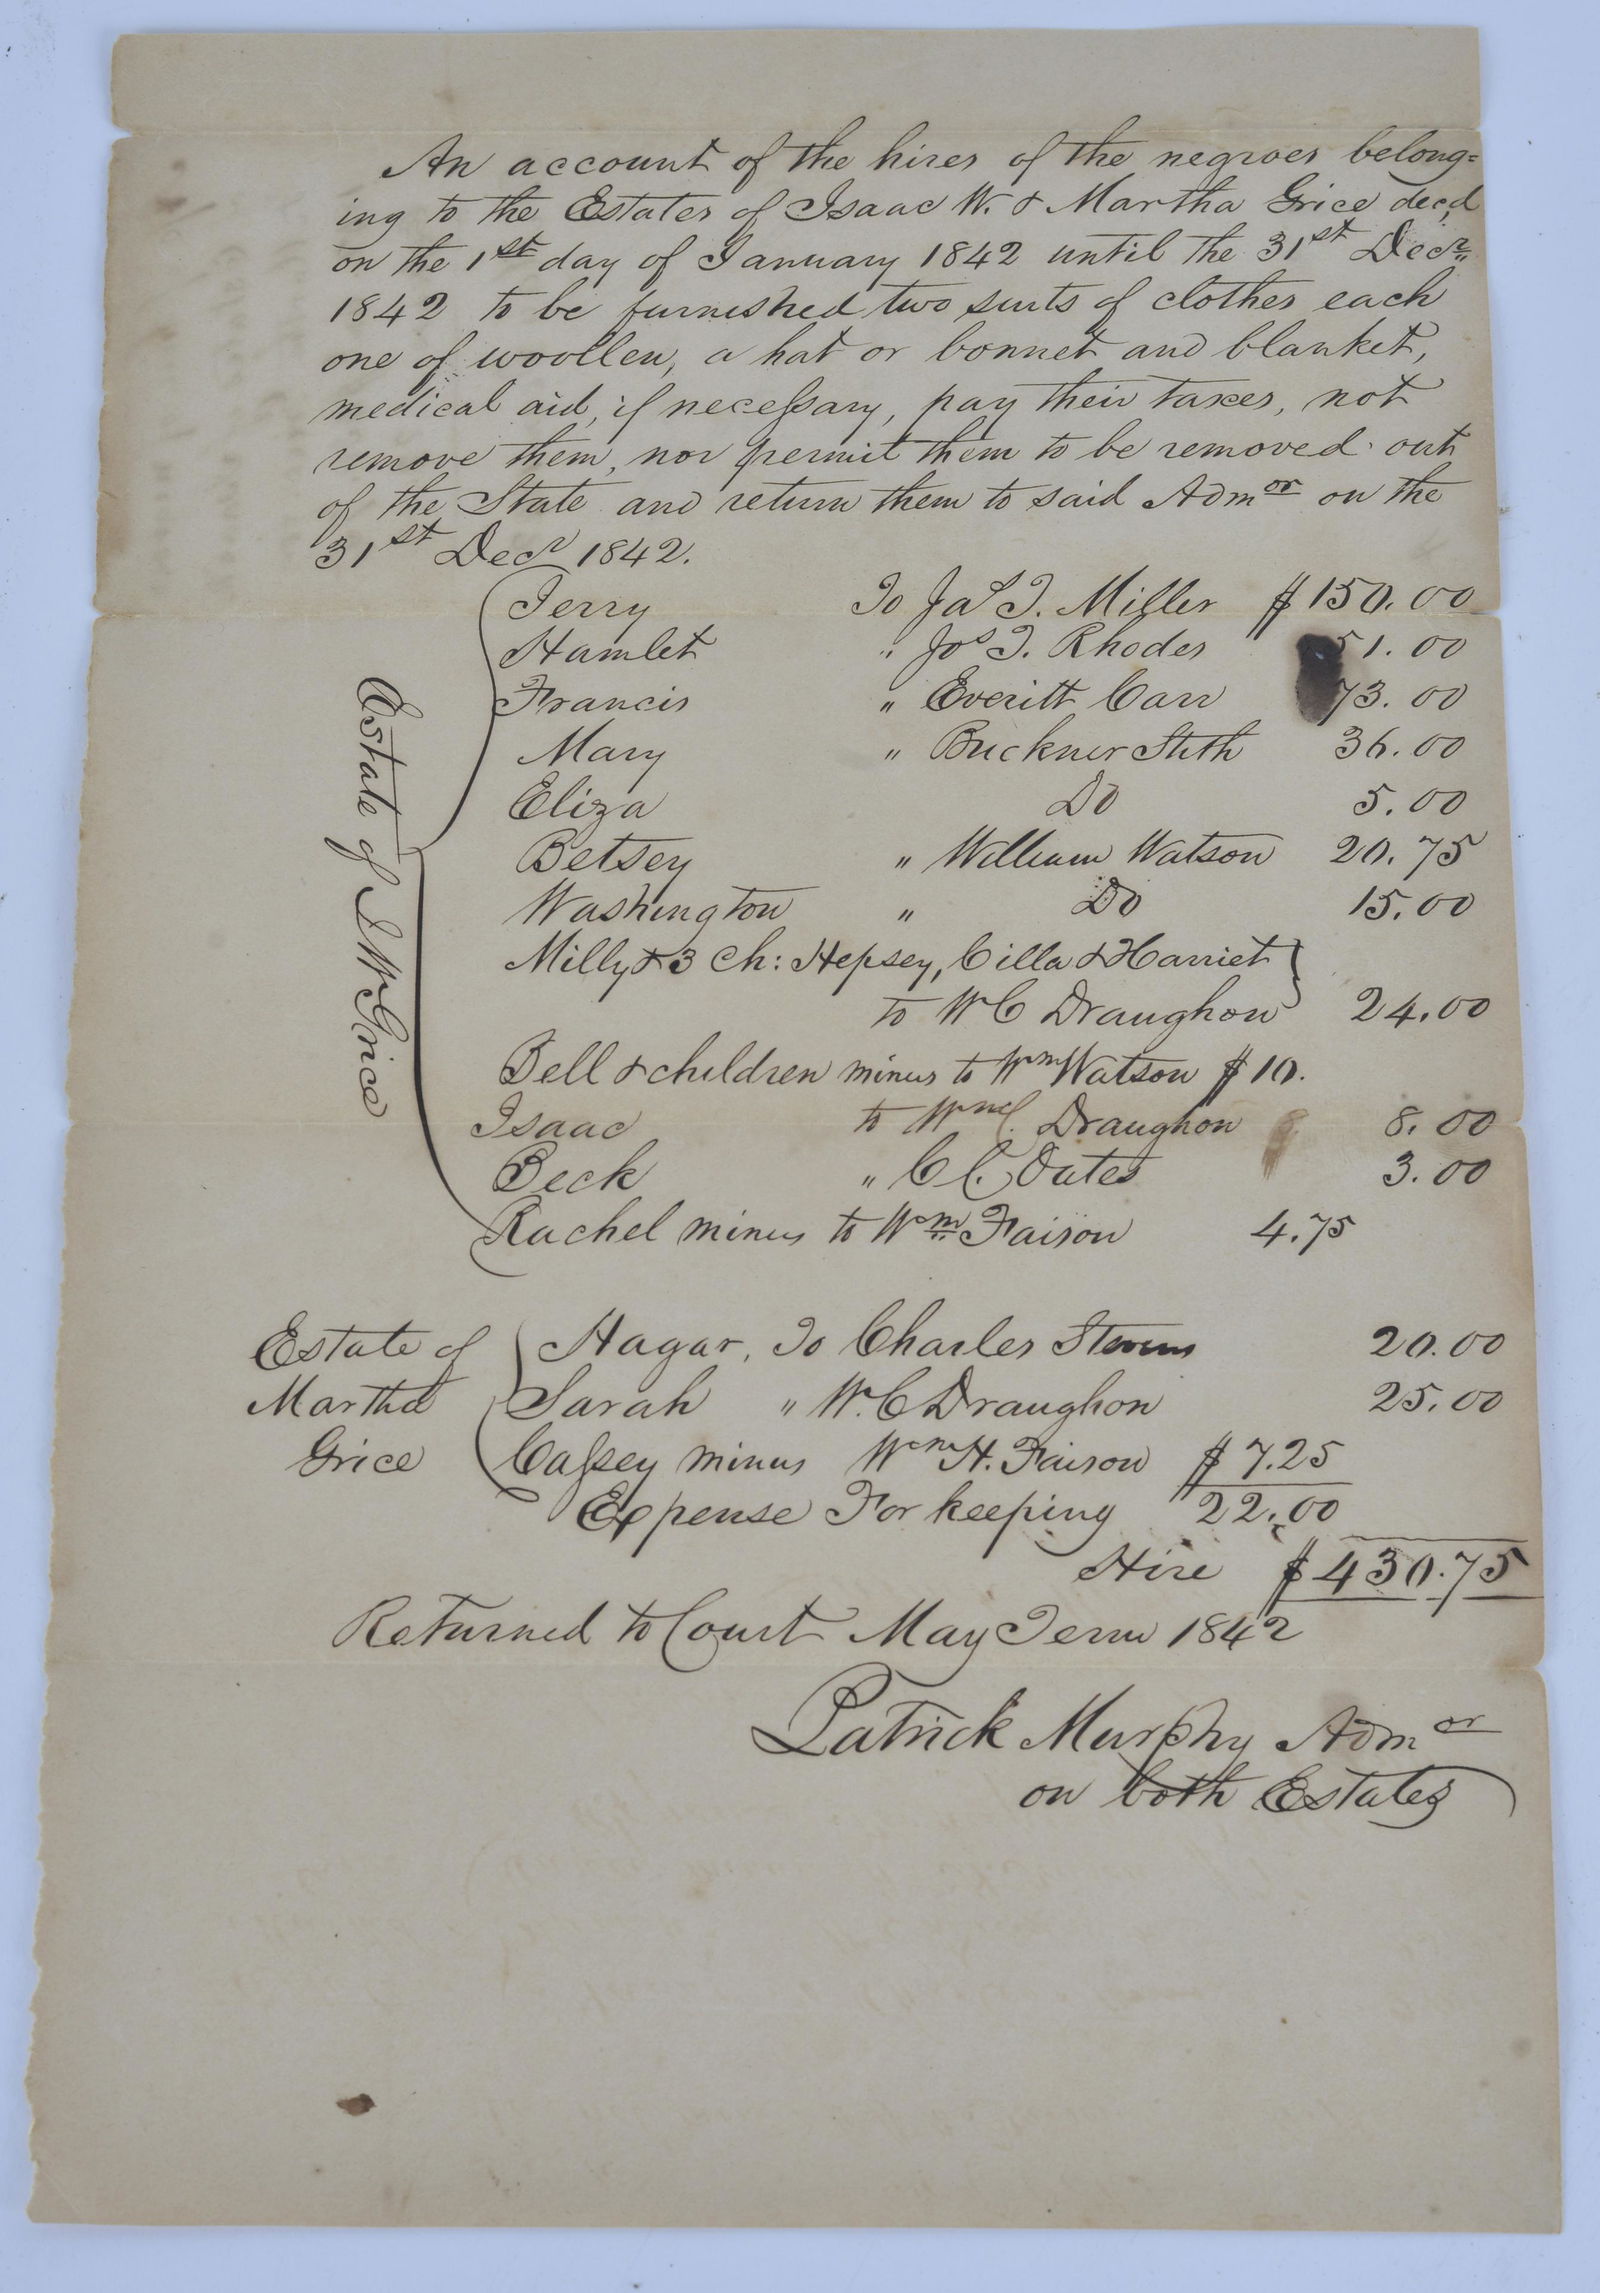 An account of the hires of the negroes belong=
ing to the Estates of Isaac W. & Martha Grice decd
on the 1st day of January 1842 until the 31st Decr
1842 to be furnished two suits of clothes each
one of woollen, a hat or bonnet and blanket,
medical aid, if necessary, pay their taxes, not
remove them, nor permit them to be removed out
of the State and return them to said Admor on the
31st Decr 1842.
Estate of I W Grice
Jerry To Jas T. Miller $150.00
Hamlet " Jos T. Rhodes 51.00
Francis " Everitt Carr 73.00
Mary " Buckner Stith 36.00
Eliza Do 5.00
Betsey " William Watson 20.75
Washington " Do 15.00
Milly & 3 Ch: Hepsey, Cilla & Harriet
to W C Draughon 24.00
Bell & children minus to Wm Watson $10.
Isaac to Wm C. Draughon 8.00
Beck " C C. Oates 3.00
Rachel minus to Wm Faison 4.75
Estate of Martha Grice
Hagar, To Charles Stevens 20.00
Sarah " W. C Draughon 25.00
Cassey minus Wm H. Faison $7.25
Expense For keeping 22.00
Hire $430.75
Returned to Court May Term 1842
Patrick Murphy Admor
on both Estates